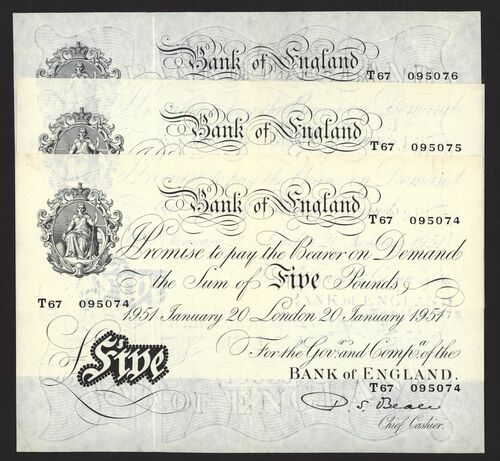 Bank of England
T67 095076
Bank of England
T67 095075
Bank of England
T67 095074
I Promise to pay the Bearer on Demand
the Sum of Five Pounds
T67 095074
1951 January 20 London 20 January 1951
£Five
For the Govr. and Compa. of the
BANK OF ENGLAND.
T67 095074
P. S. Beale
Chief Cashier.